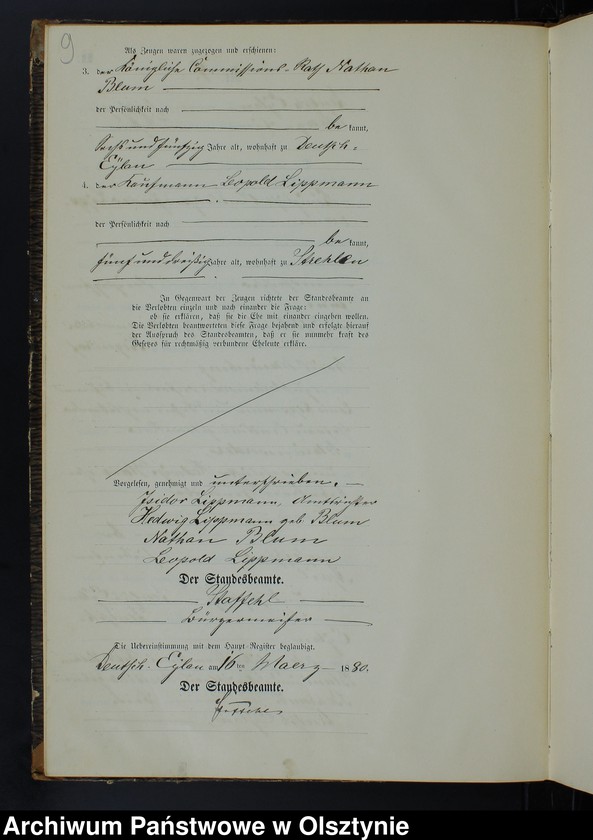 9
Als Zeugen waren zugezogen und erschienen:
3. der Königliche Commissions-Rath Nathan
Blum
der Persönlichkeit nach
be kannt,
sechs und fünfzig Jahre alt, wohnhaft zu Deutsch-
Eylau
4. der Kaufmann Leopold Lippmann
der Persönlichkeit nach
be kannt,
fünf und dreißig Jahre alt, wohnhaft zu Strehlen
In Gegenwart der Zeugen richtete der Standesbeamte an
die Verlobten einzeln und nach einander die Frage:
ob sie erklären, daß sie die Ehe mit einander eingehen wollen.
Die Verlobten beantworteten diese Frage bejahend und erfolgte hierauf
der Ausspruch des Standesbeamten, daß er sie nunmehr kraft des
Gesetzes für rechtmäßig verbundene Eheleute erkläre.
Vorgelesen, genehmigt und unterschrieben.
Isidor Lippmann, Amtsrichter
Hedwig Lippmann geb. Blum
Nathan Blum
Leopold Lippmann
Der Standesbeamte.
Staffehl
Bürgermeister
Die Uebereinstimmung mit dem Haupt-Register beglaubigt.
Deutsch-Eylau am 16ten Maerz 1880.
Der Standesbeamte.
Staffehl
Archiwum Państwowe w Olsztynie